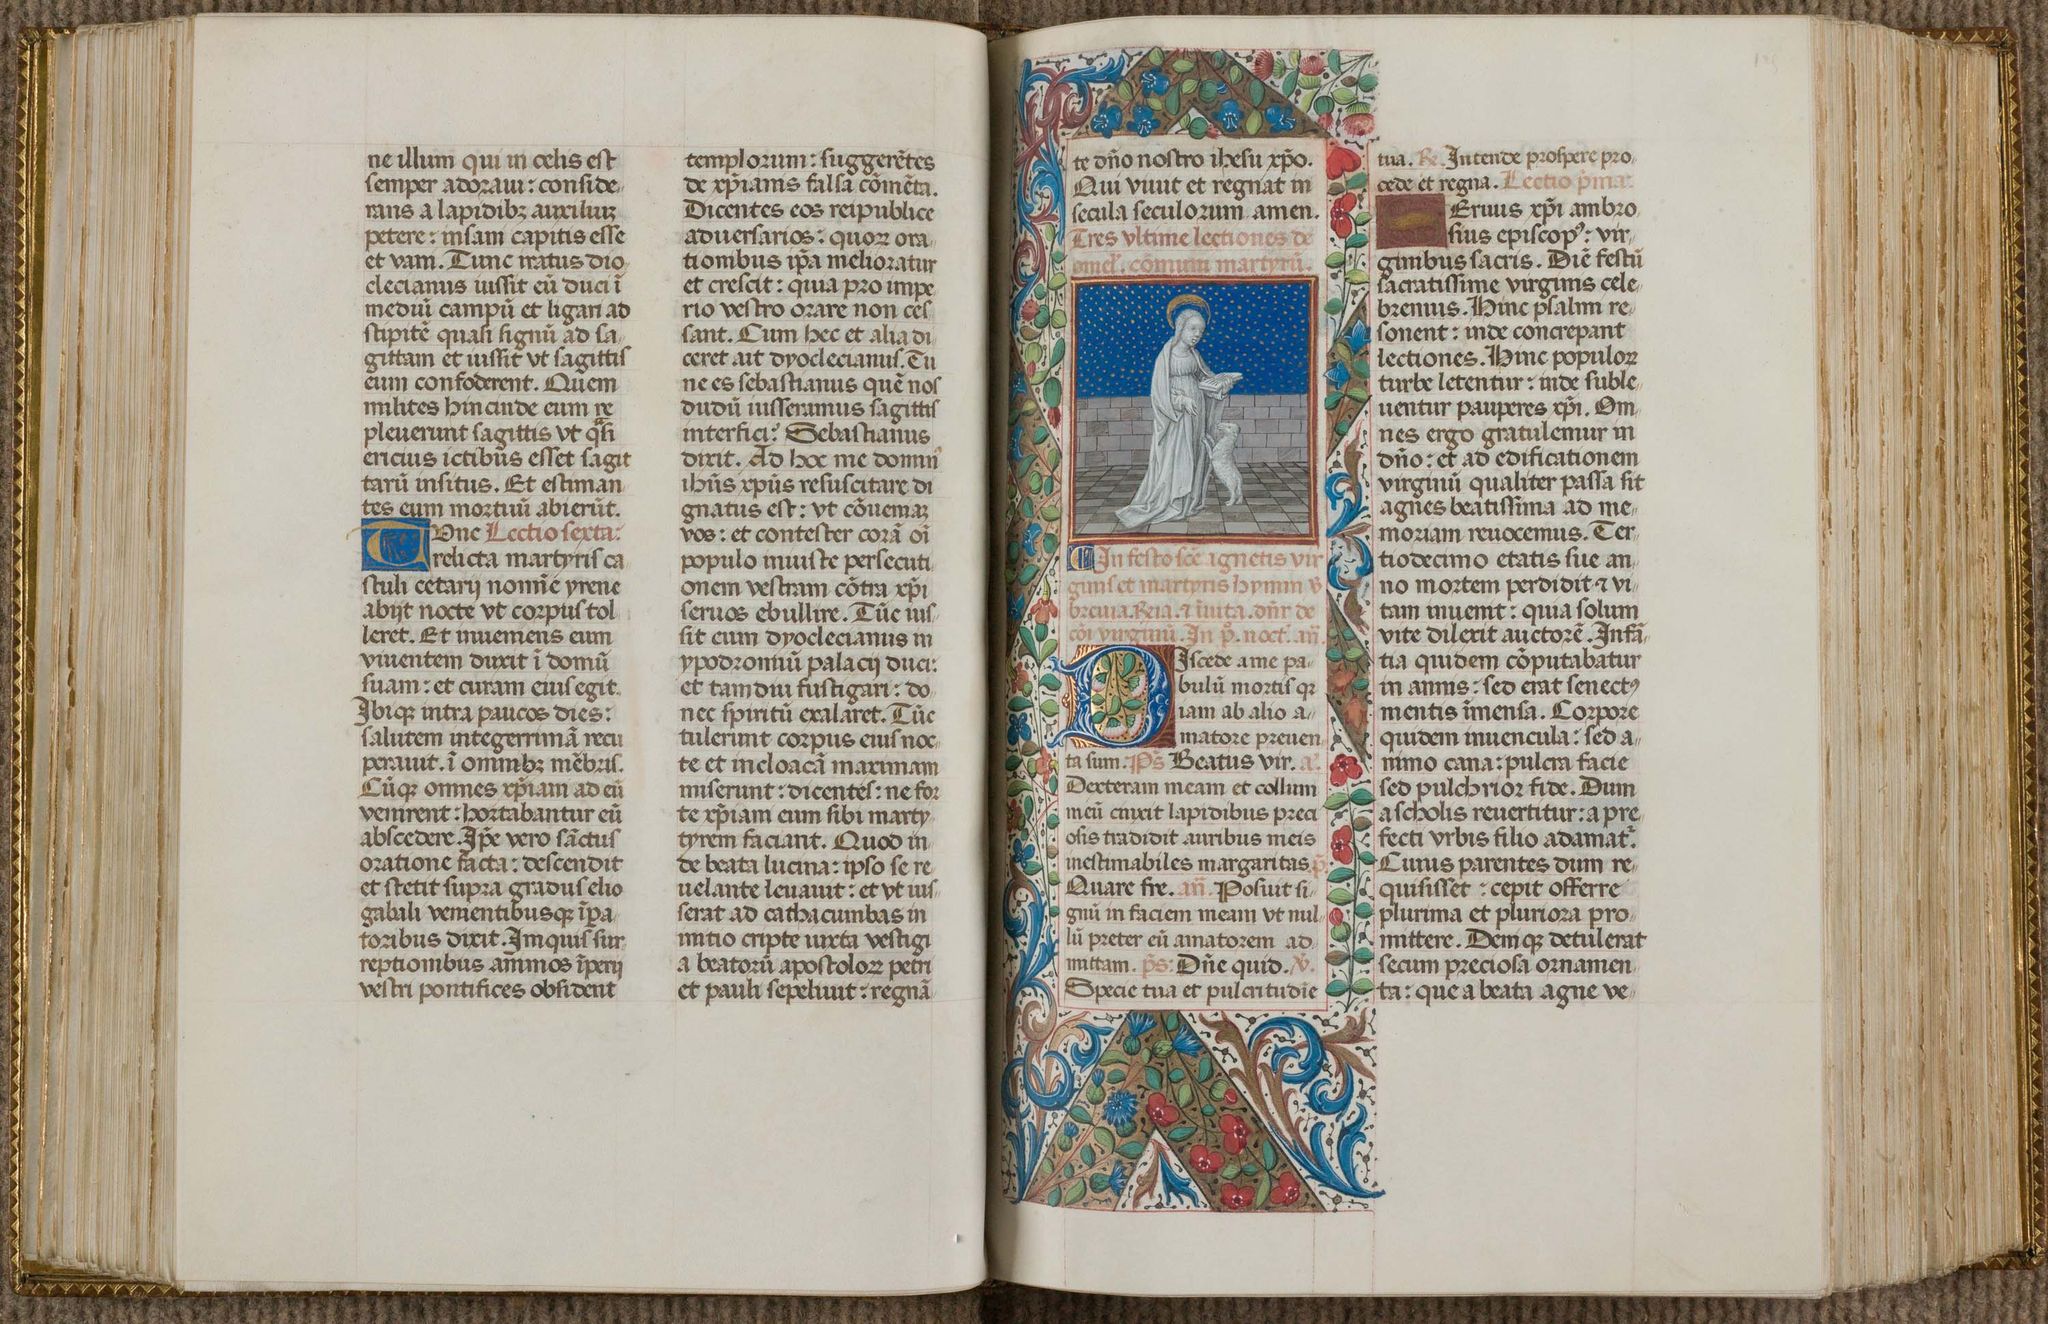 ne illum qui in celis est
semper adoraui: conside-
rans a lapidibꝫ auxiliuꝫ
petere: insani capitis esse
et vani. Tunc iratus dio-
clecianus iussit eū duci ī
mediū campū et ligari ad
stipitē quasi signū ad sa-
gittam et iussit vt sagittis
eum confoderent. Quem
milites hincinde eum re
pleuerunt sagittis vt q̄si
ericius ictibus esset sagit
tarū insitus. Et estiman-
tes eum mortuū abierūt.
Tunc Lectio sexta:
relicta martyris ca
stuli cetarij nomīe yrene
abijt nocte vt corpus tol
leret. Et inueniens eum
viuentem duxit ī domū
suam: et curam eius egit.
Ibiqꝫ intra paucos dies:
salutem integerrimā recu
perauit. ī omnibꝫ mēbris.
Cūqꝫ omnes xp̄iani ad eū
venirent: hortabantur eū
abscedere. Ip̄e vero sānctus
oratione facta: descendit
et stetit supra gradus elio
gabali venientibusqꝫ īpa-
toribus dixit. Iniquis sur
reptionibus animos īperij
vestri pontifices obsident
templorum: suggerētes
de xp̄ianis falsa cōmēta.
Dicentes eos reipublice
aduersarios: quoꝝ ora-
tionibus ip̄a melioratur
et crescit: quia pro impe-
rio vestro orare non ces-
sant. Cum hec et alia di-
ceret ait dyoclecianus. Tu
ne es sebastianus quē nos
dudū iusseramus sagittis
interfici? Sebastianus
dixit. Ad hoc me domin9
ihūs xp̄us resuscitare di
gnatus est: vt cōueniaꝫ
vos: et contester corā oī
populo iniuste persecuti
onem vestram cōtra xp̄i
seruos ebullire. Tūc ius-
sit eum dyoclecianus in
ypodromiū palacij duci:
et tamdiu fustigari: do-
nec spiritū exalaret. Tūc
tulerunt corpus eius noc-
te et incloacā maximam
miserunt: dicentes: ne for
te xp̄iani eum sibi marty-
tyrem faciant. Quod in-
de beata lucina: ipso se re
uelante leuauit: et vt ius-
serat ad cathacumbas in
initio cripte iuxta vestigi
a beatorū apostoloꝝ petri
et pauli sepeliuit: regnā-
te dn̄o nostro ihesu xp̄o.
Qui viuit et regnat in
secula seculorum amen.
Tres vltime lectiones de
omel. cōmuni martyrū.
In festo scē agnetis vir
ginis et martyris hymni v̄
breuia. Rn̄a. & īuita. dn̄r de
cōi virginū. In p̄. noct. an̄.
Discede a me pa-
bulū mortis qꝛ
iam ab alio a-
matore preuen-
ta sum. p̄s. Beatus vir. a.
Dexteram meam et collum
meū cinxit lapidibus preci
osis tradidit auribus meis
inestimabiles margaritas p̄.
Quare fre. an̄. Posuit si-
gnū in faciem meam vt nul-
lū preter eū amatorem ad-
mittam. p̄s: Dn̄e quid. v̄.
Specie tua et pulcritudīe
tua. R̄. Intende prospere pro-
cede et regna. Lectio p̄ma.
Eruus xp̄i ambro
sius episcop9: vir-
ginibus sacris. Diē festū
sacratissime virginis cele-
bremus. Hinc psalmi re-
sonent: inde concrepant
lectiones. Hinc populoꝝ
turbe letentur: inde suble-
uentur pauperes xp̄i. Om-
nes ergo gratulemur in
dn̄o: et ad edificationem
virginū qualiter passa sit
agnes beatissima ad me-
moriam reuocemus. Ter-
tiodecimo etatis sue an-
no mortem perdidit & vi-
tam inuenit: quia solum
vite dilexit auctorē. Infā-
tia quidem cōputabatur
in annis: sed erat senect9
mentis īmensa. Corpore
quidem iuuencula: sed a-
nimo cana: pulcra facie
sed pulchrior fide. Dum
a scholis reuertitur: a pre-
fecti vrbis filio adamat͛.
Cuius parentes dum re-
quisisset: cepit offerre
plurima et pluriora pro-
mittere. Deniqꝫ detulerat
secum preciosa ornamen-
ta: que a beata agne ve-